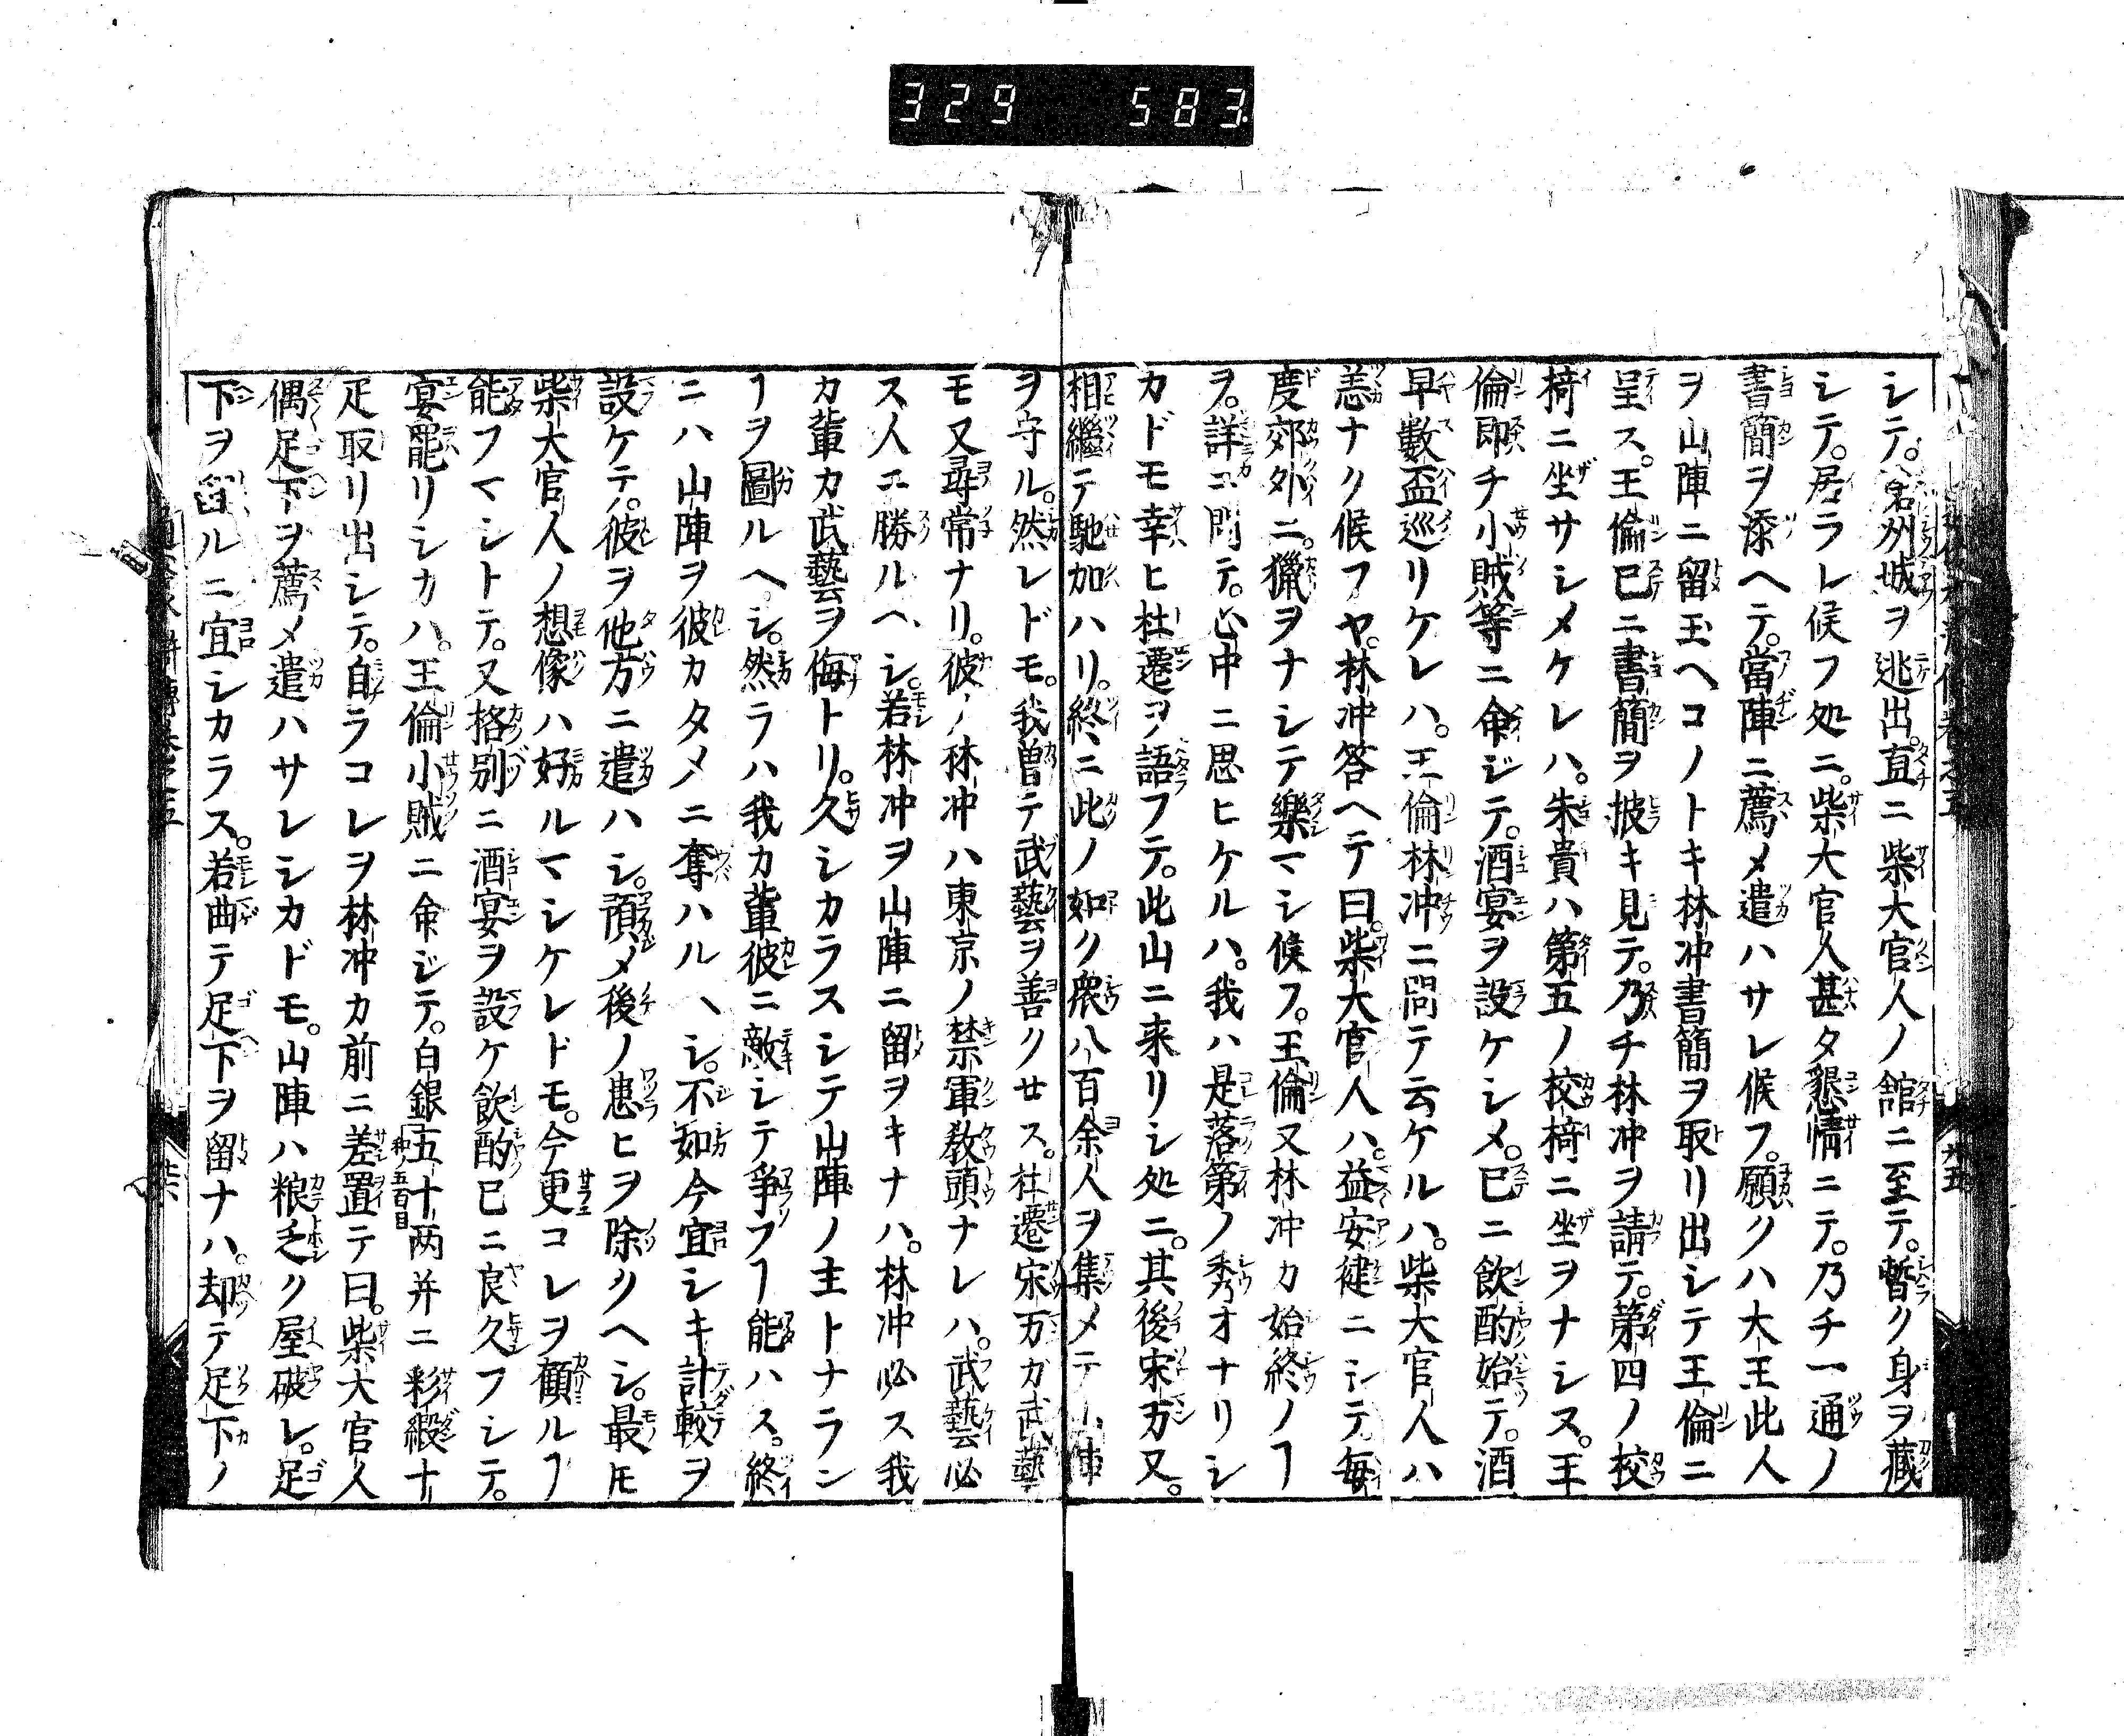 329 583
シテ。滄州城ヲ逃出。直ニ柴大官人ノ館ニ至テ。暫ク身ヲ藏
シテ。居ラレ候フ処ニ。柴大官人甚タ懇情ニテ。乃チ一通ノ
書簡ヲ添ヘテ。當陣ニ薦メ遣ハサレ候フ。願クハ大王此人
ヲ山陣ニ留玉ヘコノトキ林冲書簡ヲ取リ出シテ王倫ニ
呈ス。王倫已ニ書簡ヲ披キ見テ。乃チ林冲ヲ請テ。第四ノ校
椅ニ坐サシメケレハ。朱貴ハ第五ノ校椅ニ坐ヲナシヌ。王
倫即チ小賊等ニ命ジテ。酒宴ヲ設ケシメ。已ニ飲酌始テ。酒
早數盃巡リケレハ。王倫林冲ニ問テ云ケルハ。柴大官人ハ
恙ナク候フヤ。林冲答ヘテ曰。柴大官人ハ。益安健ニシテ。毎
度郊外ニ。獵ヲナシテ樂マシ候フ。王倫又林冲カ始終ノヿ
ヲ。詳ニ問テ。心中ニ思ヒケルハ。我ハ是落第ノ秀才ナリシ
カドモ幸ヒ杜遷ヲ語フテ。此山ニ来リシ処ニ。其後宋万又。
相繼テ馳加ハリ。終ニ此ノ如ク衆八百余人ヲ集メテ山陣
ヲ守ル。然レドモ。我曽テ武藝ヲ善クセス。杜遷宋万カ武藝
モ又尋常ナリ。彼ノ林冲ハ東京ノ禁軍教頭ナレハ。武藝必
ス人ニ勝ルヘシ。若林冲ヲ山陣ニ留ヲキナハ。林冲必ス我
カ輩カ武藝ヲ侮トリ。久シカラスシテ山陣ノ主トナラン
ヿヲ圖ルヘシ。然ラハ我カ輩彼ニ敵シテ爭フヿ能ハス。終
ニハ山陣ヲ彼カタメニ奪ハルヘシ。不如今宜シキ計較ヲ
設ケテ。彼ヲ他方ニ遣ハシ。預メ後ノ患ヒヲ除クヘシ。最モ
柴大官人ノ想像ハ好ルマシケレドモ。今更コレヲ顧ルヿ
能フマシトテ。又格別ニ酒宴ヲ設ケ飲酌已ニ良久フシテ。
宴罷リシカハ。王倫小賊ニ命ジテ。白銀五十両并ニ彩緞十
和ノ五百目
疋取リ出シテ。自ラコレヲ林冲カ前ニ差置テ曰。柴大官人
偶足下ヲ薦メ遣ハサレシカドモ。山陣ハ粮乏ク屋破レ。足
下ヲ留ルニ宜シカラス。若曲テ足下ヲ留ナハ。却テ足下ノ